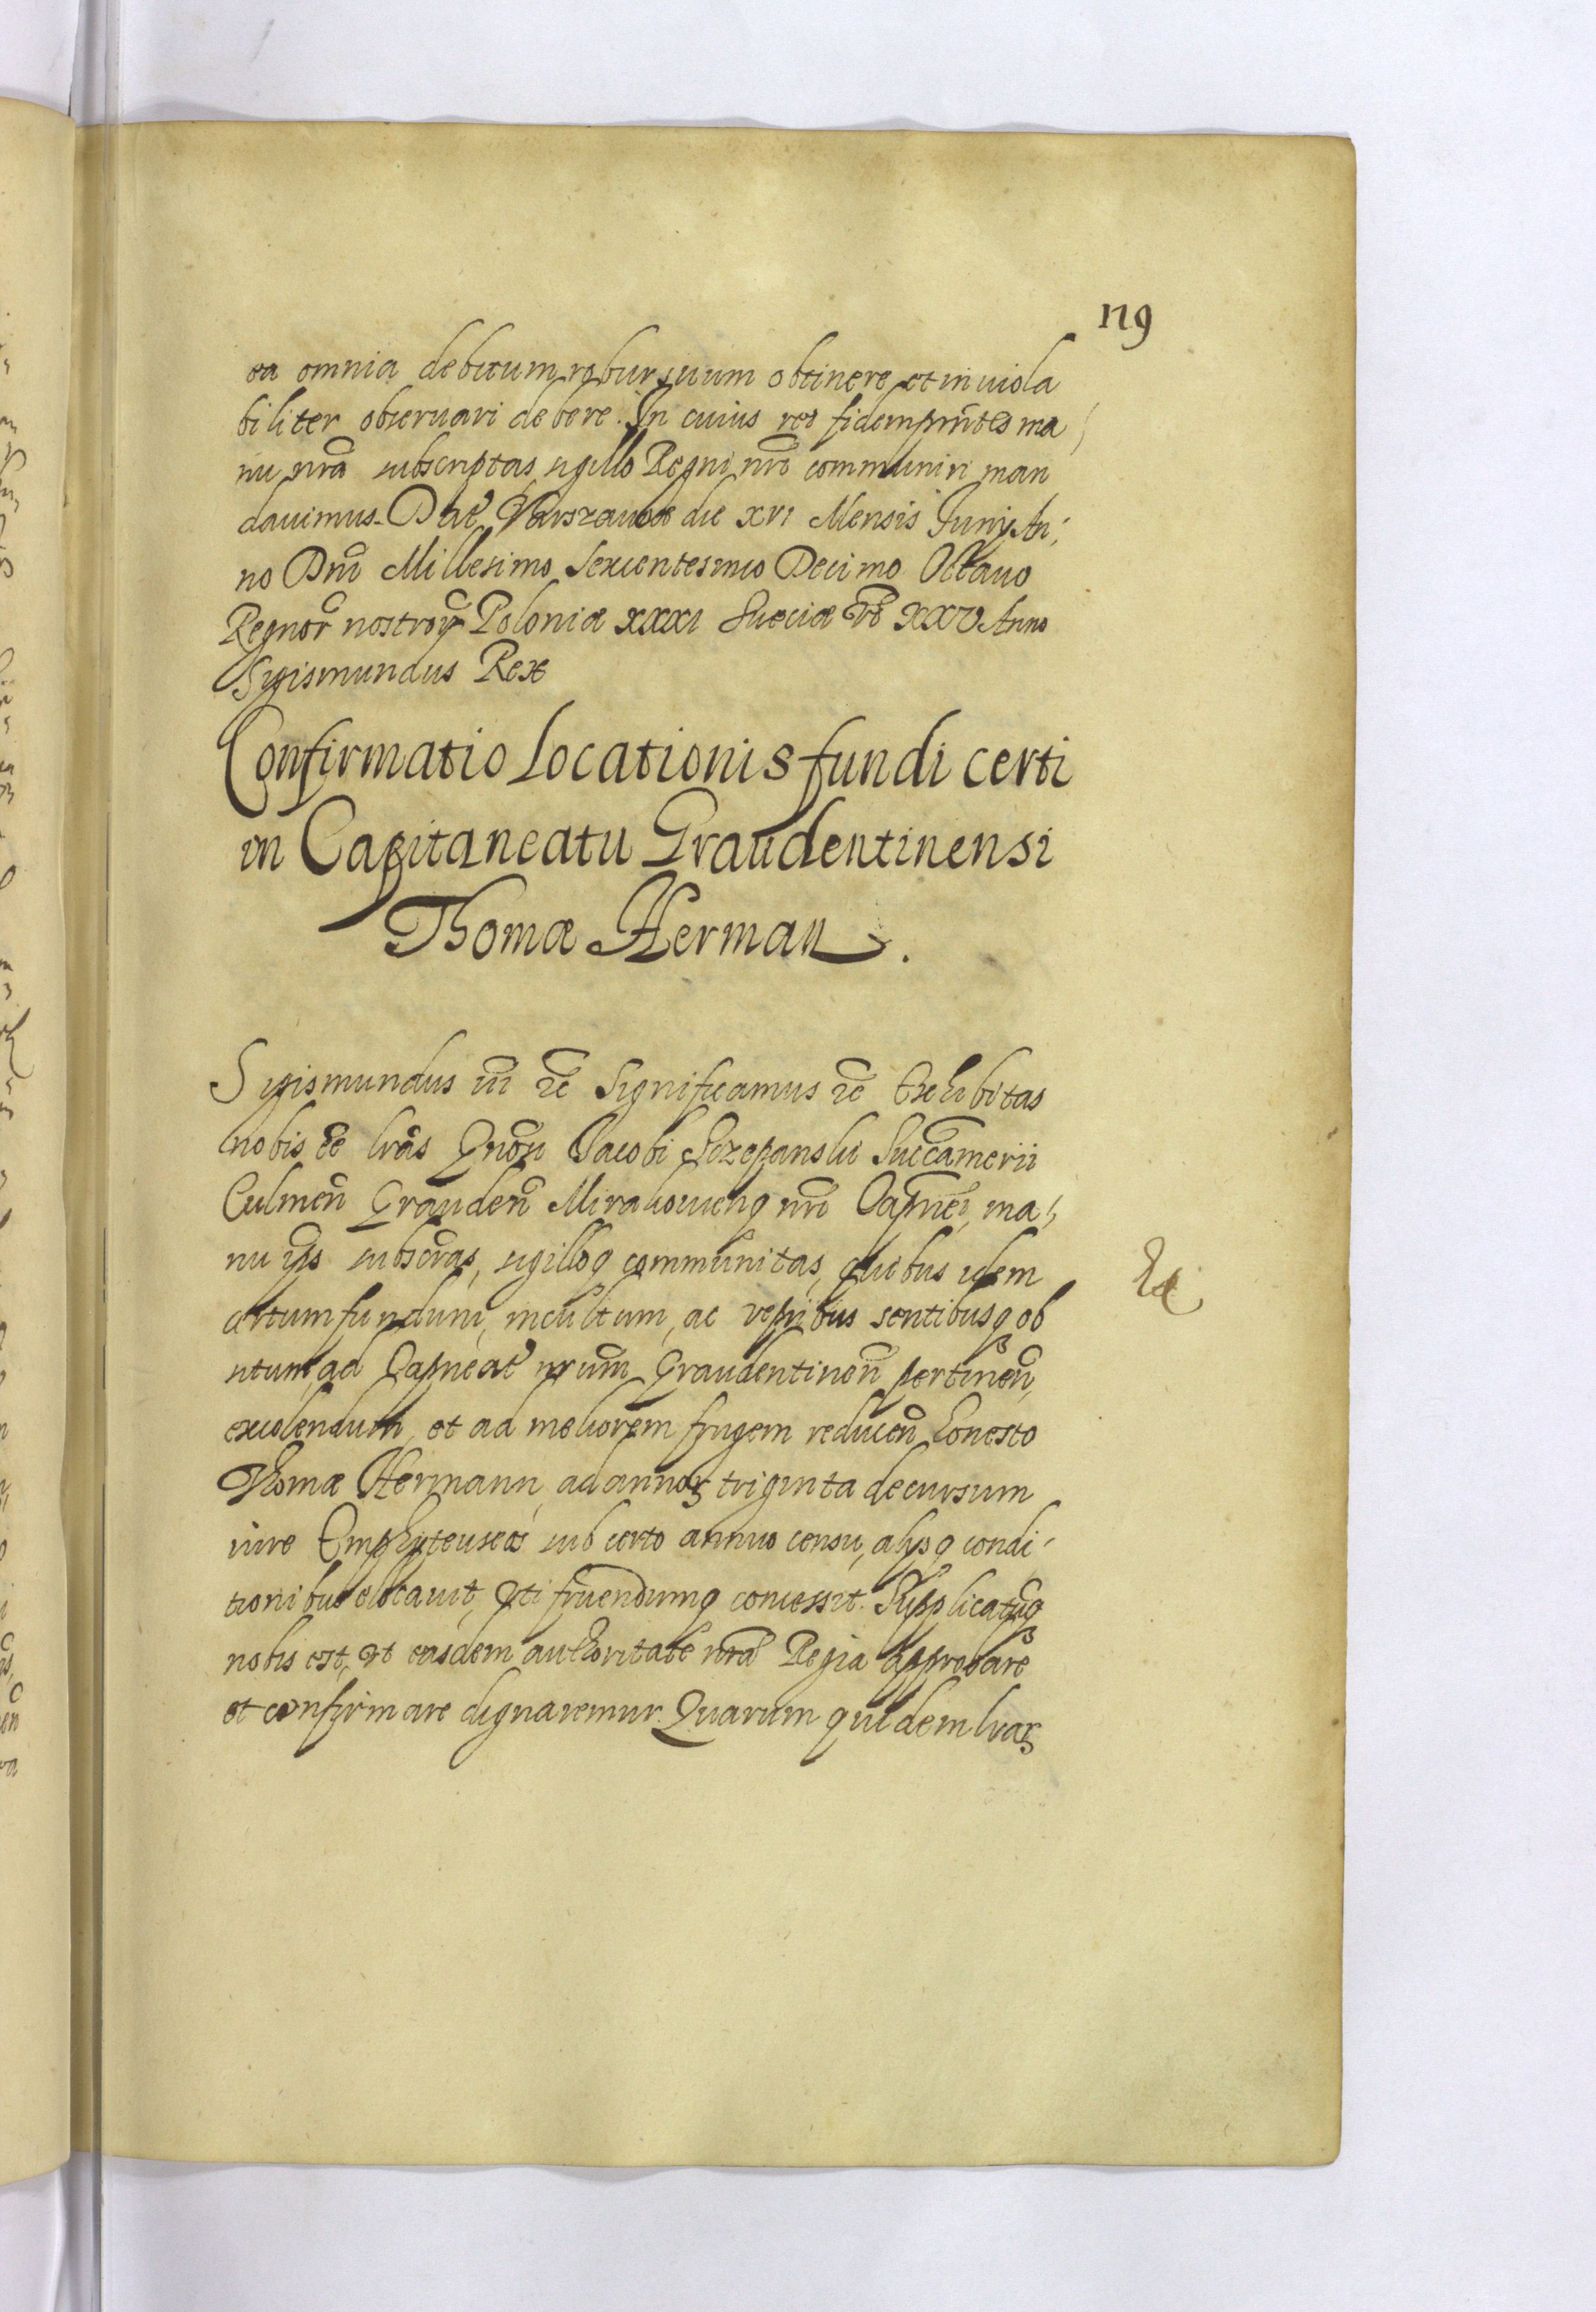 129
ea omnia debitum robur suum obtinere et inuiola
biliter obseruari debere. In cuius rei fidem pñtes ma
nu nrã subscriptas, sigillo Regni nri communiri man
dauimus. Dat Varszauiæ die XVI Mensis Junij An:
no Dni Millesimo Sexcentesimo Decimo Octauo
Regnor nostror Poloniæ XXXI Sueciæ vo XXV Anno
Sigismundus Rex
Confirmatio Locationis fundi certi
in Capitaneatu Graudentinensi
Thomæ Herman.
Sigismundus III etc Significamus etc Exhibitas
nobis ee lras Gnosi Jacobi Sczepanski Succamerii
Culmen Grauden Mirahouienq nri Capnei, ma-
nu ips subscras, sigilloq communitas, quibus idem
certum fundum, incultum, ac vepribus sentibusq ob
situm, ad Capneat nrum Graudentinen pertinen,
excolendum, et ad meliorem frugem reducen honesto
Thomæ Hermann, ad annor triginta decursum
iure Emphyteuseos sub certo annuo censu, alijsq condi-
tionibus elocauit, uti fruendumq concessit. Supplicatuq
nobis est, ut easdem authoritate nra Regia approbare
et confirmare dignaremur. Quarum quidem lrar